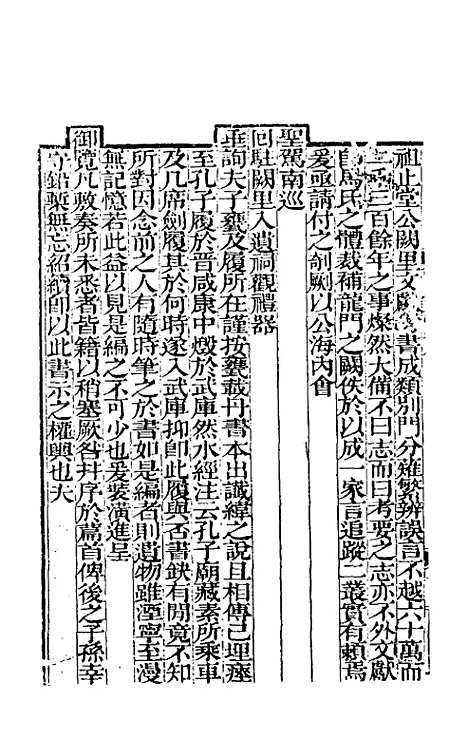 祖止堂公闕里文獻書成類別門分薙繁辨誤言不越六十萬而
二千三百餘年之事燦然大備不曰志而曰考要之志亦不外文獻
馬氏之體裁補龍門之闕佚於以成一家言追蹤二叢實有賴焉
爰亟請付之剞劂以公海內會
聖駕南巡
回駐闕里入遺祠觀禮器
垂詢夫子甕及履所在謹按甕載丹書本出讖緯之說且相傳已埋瘞
至孔子履於晉咸康中燬於武庫然水經注云孔子廟藏素所乘車
及几席劍履其於何時遂入武庫抑卽此履與否書鈌有閒竟不知
所對因念前之人有隨時筆之於書如是編者則遺物雖湮寧至漫
無記憶若此益以見是編之不可少也爰裝潢進呈
御覽凡敷奏所未悉者皆籍以稍塞厥咎幷序於篇首俾後之子孫幸
守鉛槧無忘紹續卽以此書示之權輿也夫